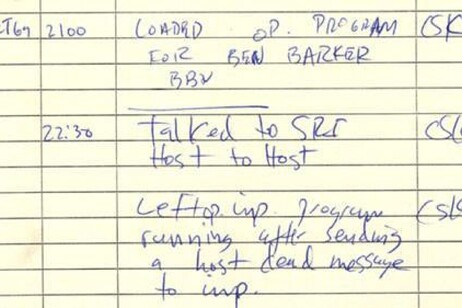 2100 LOADED OP. PROGRAM CSK
FOR BEN BARKER
BBN
22:30 Talked to SRI
Host to Host
Left op. imp. program
running after sending
a host dead message
to imp.